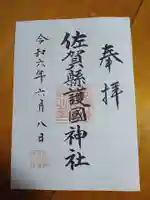 奉拝
佐賀縣護國神社
令和六年六月八日